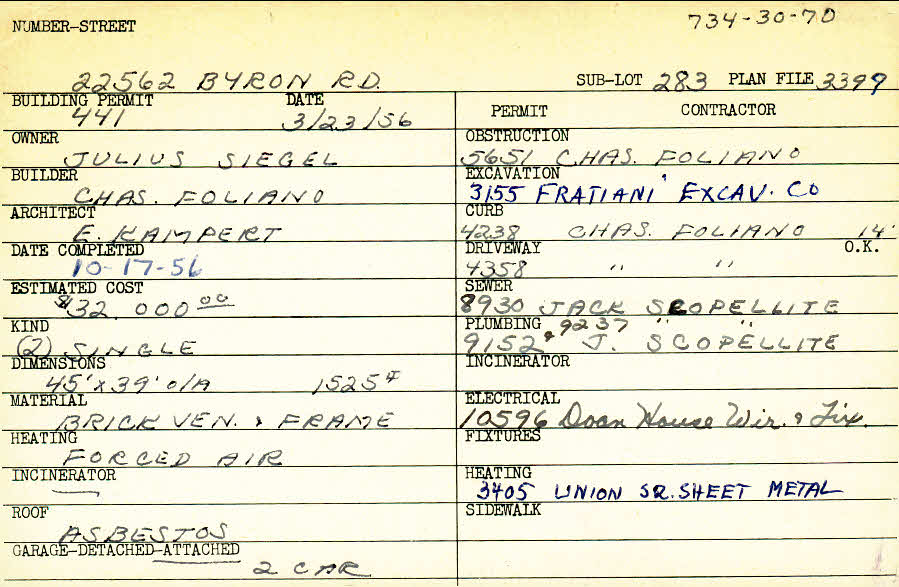 734-30-70
NUMBER-STREET
22562 BYRON RD. SUB-LOT 283 PLAN FILE 3399
BUILDING PERMIT DATE
441 3/23/56
OWNER
JULIUS SIEGEL
BUILDER
CHAS. FOLIANO
ARCHITECT
E. KAMPERT
DATE COMPLETED
10-17-56
ESTIMATED COST
$32.000 00
KIND
(2) SINGLE
DIMENSIONS
45'x39' O/A 1525
MATERIAL
BRICK VEN. & FRAME
HEATING
FORCED AIR
INCINERATOR
—
ROOF
ASBESTOS
GARAGE-DETACHED-ATTACHED
2 CAR
PERMIT CONTRACTOR
OBSTRUCTION
5651 CHAS. FOLIANO
EXCAVATION
3155 FRATIANI EXCAV. CO
CURB
4238 CHAS. FOLIANO 14'
DRIVEWAY O.K.
4358 " "
SEWER
8930 JACK SCOPELLITE
PLUMBING 9237 " "
9152 & J. SCOPELLITE
INCINERATOR
ELECTRICAL
10596 Doan House Wir. & Fix.
FIXTURES
HEATING
3405 UNION SQ. SHEET METAL
SIDEWALK